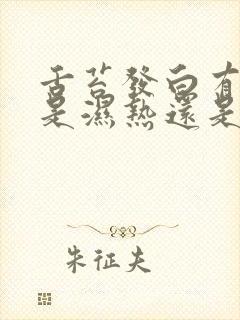 舌苔發白有
是濕熱還是
朱征夫